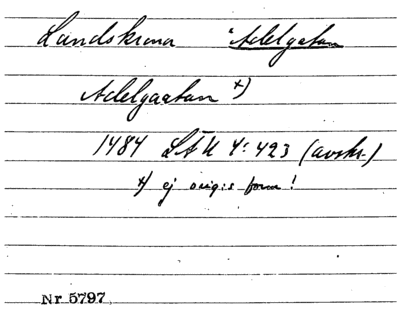 Landskrona *Adelgatan
Adelgaatan x)
1484 LÄU 4:423 (avskr.)
x) ej orig:s form!
Nr 5797